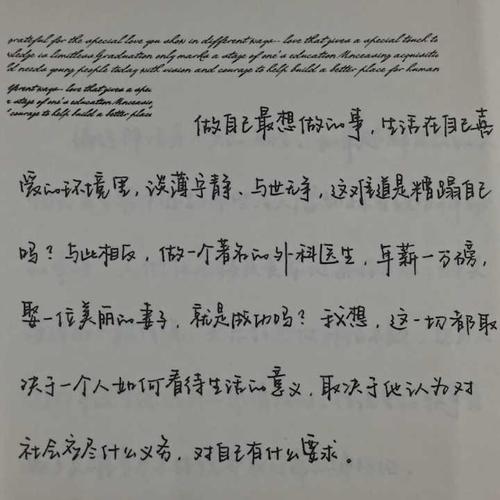 grateful for the special love you show in different ways-- love that gives a special touch to
ledge is limitless Graduation only marks a stage of one's education Unceasing acquisitio
ld needs young people today with vision and courage to help build a better place for human
fferent ways-- love that gives a spec
a stage of one's education Unceasing
courage to help build a better place
做自己最想做的事，生活在自己喜
爱的环境里，淡薄宁静、与世无争，这难道是糟蹋自己
吗？与此相反，做一个著名的外科医生，年薪一万磅，
娶一位美丽的妻子，就是成功吗？我想，这一切都取
决于一个人如何看待生活的意义，取决于他认为对
社会应尽什么义务，对自己有什么要求。